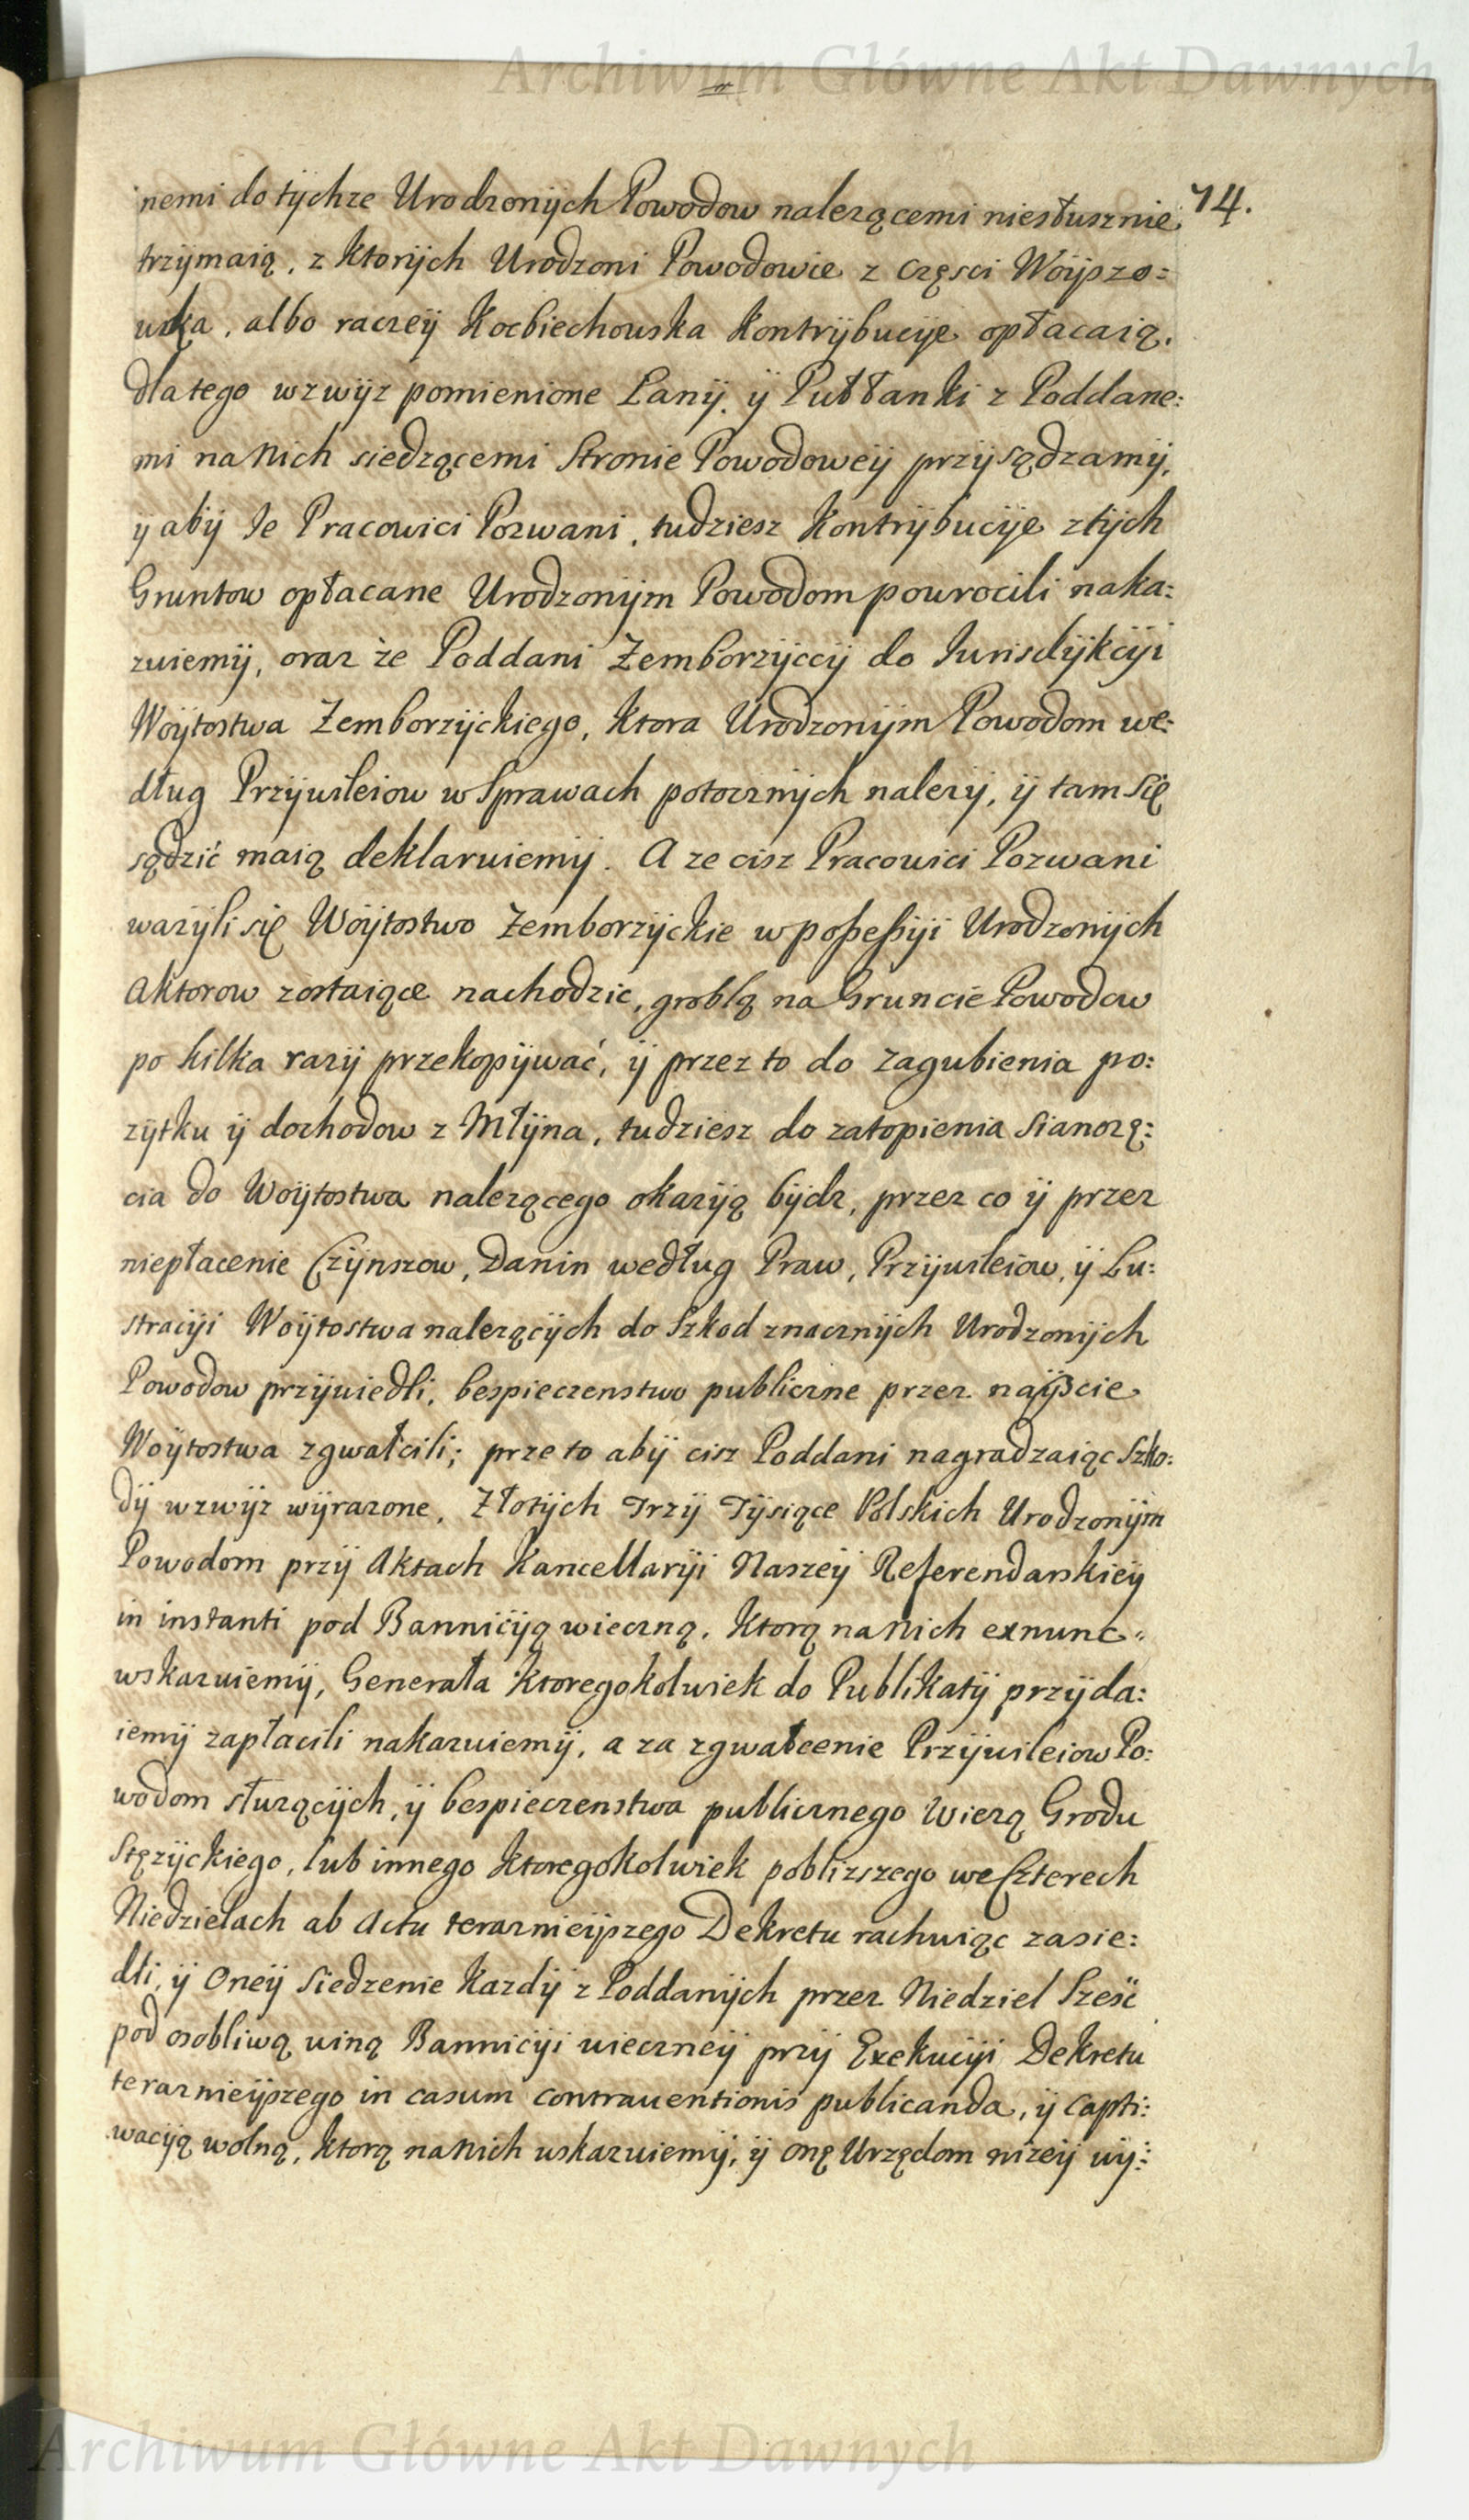 Archiwum Główne Akt Dawnych
74.
nemi do tychze Urodzonych Powodow nalezącemi niesłusznie
trzymaią, z ktorych Urodzoni Powodowie z części Woyszo=
wska, albo raczey Kocbiechowska Kontrybucye opłacaią.
dla tego wzwyz pomienione Łany, y Pułłanki z Poddane:
mi na nich siedzącemi Stronie Powodowey przysądzamy,
y aby Ie Pracowici Pozwani, tudziesz Kontrybucye z tych
Gruntow opłacane Urodzonym Powodom powrocili naka:
zuiemy, oraz że Poddani Zemborzyccy do Iurisdykcyi
Woytostwa Zemborzyckiego, ktora Urodzonym Powodom we:
dług Przywileiow w Sprawach potocznych nalezy, y tam Się
sądzić maią deklaruiemy. A ze cisz Pracowici Pozwani
wazyli się Woytostwo Zemborzyckie w poßeßyi Urodzonych
Aktorow zostaiące nachodzic, groblą na Gruncie Powodow
po kilka razy przekopywać, y przez to do zagubienia po:
zytku y dochodow z Młyna, tudziesz do zatopienia Sianozę:
cia do Woytostwa nalezącego okazyą bydz, przez co y przez
niepłacenie Czynszow, Danin według Praw, Przywileiow, y Lu:
stracyi Woytostwa nalezących do Szkod znacznych Urodzonych
Powodow przywiedli, bespieczenstwo publiczne przez nayscie
Woytostwa zgwałcili; prze to aby cisz Poddani nagradzaiąc Szko:
dy wzwyz wyrazone, Złotych Trzy Tysiące Polskich Urodzonym
Powodom przy Aktach Kancellaryi Naszey Referendarskiey
in instanti pod Bannicyą wieczną, ktorą na nich exnunc
wskazuiemy, Generała ktoregokolwiek do Publikaty przyda:
iemy zapłacili nakazuiemy, a za zgwałcenie Przywileiow Po:
wodom słuzących, y bespieczenstwa publicznego Wiezą Grodu
Stęzyckiego, lub innego ktoregokolwiek poblizszego we Czterech
Niedzielach ab Actu terazniejszego Dekretu rachuiąc zasie:
dli, y Oney Siedzenie kazdy z Poddanych przez Niedziel Sześć
pod osobliwą winą Bannicyi wieczney przy Exekucyi Dekretu
terazniejszego in casum contrauentionis publicanda, y capti:
wacyą wolną, ktorą na nich wskazuiemy, y onę Urzędom nizey wy:
Archiwum Główne Akt Dawnych